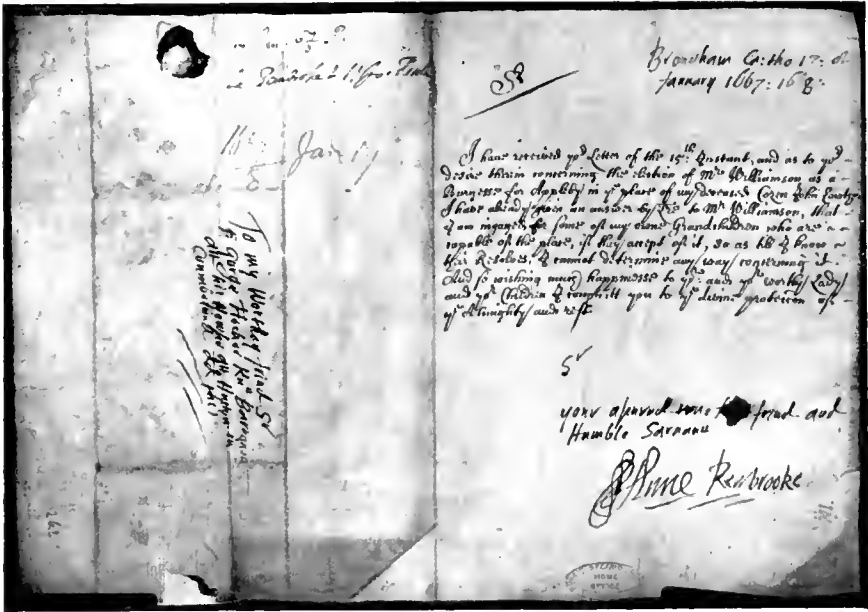 Pembroke
16
Jan
8
To my Worthey friend Sr
George Flecher Kn Baronett
att his Howse att Hutton in
Cumberland

Sr
Brougham Ca: the 17: of
January 1667: 168
I have received yor Letter of the 15th Instant, and as to yor
desire therin concerning the election of Mr Williamson as a
Burgesse for Appleby in ye place of my deceased Cozen John Lowther
I have already given an answer by to Mr Williamson, that
I am ingaged for some of my owne Grandchildren who are
capable of the place, if they accept of it, so as till I know
their Resolves, I cannot determine any way concerning it.
And so wishing much happinesse to yr and yor worthy Lady
and yor Children I committ you to ye divine protection of
ye Almighty and rest
Sr
your asured friend and
Humble Sarvant
Anne Pembrooke
HOME
OFFICE